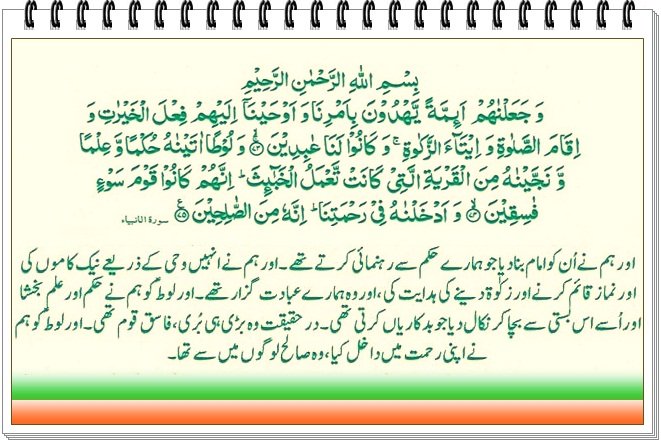 بِسْمِ اللهِ الرَّحْمٰنِ الرَّحِيْمِ
وَ جَعَلْنٰهُمْ اَىِٕمَّةً يَّهْدُوْنَ بِاَمْرِنَا وَ اَوْحَيْنَاۤ اِلَيْهِمْ فِعْلَ الْخَيْرٰتِ وَ
اِقَامَ الصَّلٰوةِ وَ اِيْتَآءَ الزَّكٰوةِ ۚ وَ كَانُوْا لَنَا عٰبِدِيْنَ ﴿۷۳﴾ وَ لُوْطًا اٰتَيْنٰهُ حُكْمًا وَّ عِلْمًا
وَّ نَجَّيْنٰهُ مِنَ الْقَرْيَةِ الَّتِيْ كَانَتْ تَّعْمَلُ الْخَبٰٓىِٕثَ ؕ اِنَّهُمْ كَانُوْا قَوْمَ سَوْءٍ
فٰسِقِيْنَ ﴿۷۴﴾ وَ اَدْخَلْنٰهُ فِيْ رَحْمَتِنَا ؕ اِنَّهٗ مِنَ الصّٰلِحِيْنَ ﴿۷۵﴾ سورة الانبیاء
اور ہم نے اُن کو امام بنا دیا جو ہمارے حکم سے رہنمائی کرتے تھے۔ اور ہم نے انہیں وحی کے ذریعے نیک کاموں کی
اور نماز قائم کرنے اور زکوٰة دینے کی ہدایت کی، اور وہ ہمارے عبادت گزار تھے۔ اور لوط کو ہم نے حکم اور علم بخشا
اور اُسے اس بستی سے بچا کر نکال دیا جو بدکاریاں کرتی تھی۔ درحقیقت وہ بڑی ہی بُری، فاسق قوم تھی۔ اور لوط کو ہم
نے اپنی رحمت میں داخل کیا، وہ صالح لوگوں میں سے تھا۔